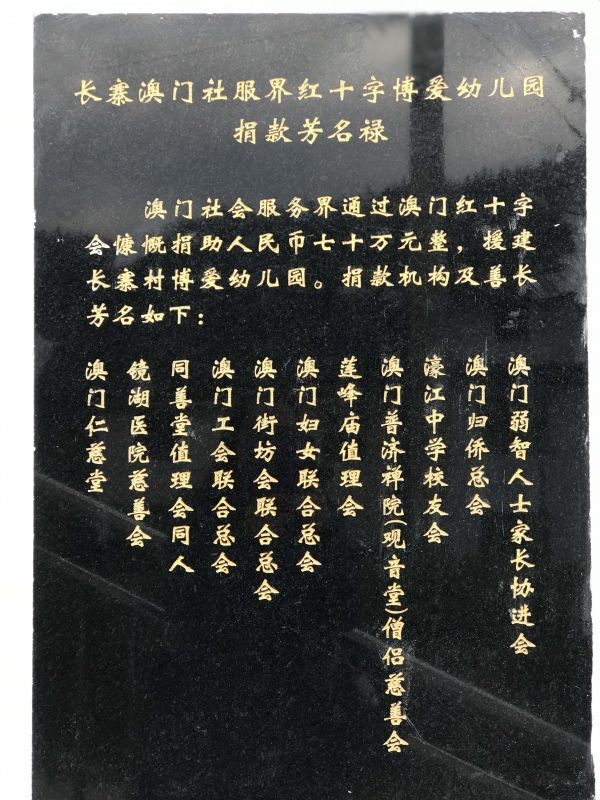 长寨澳门社服界红十字博爱幼儿园
捐款芳名禄
澳门社会服务界通过澳门红十字
会慷慨捐助人民币七十万元整，援建
长寨村博爱幼儿园。捐款机构及善长
芳名如下：
澳门仁慈堂
镜湖医院慈善会
同善堂值理会同人
澳门工会联合总会
澳门街坊会联合总会
澳门妇女联合总会
莲峰庙值理会
澳门普济禅院(观音堂)僧侣慈善会
濠江中学校友会
澳门归侨总会
澳门弱智人士家长协进会